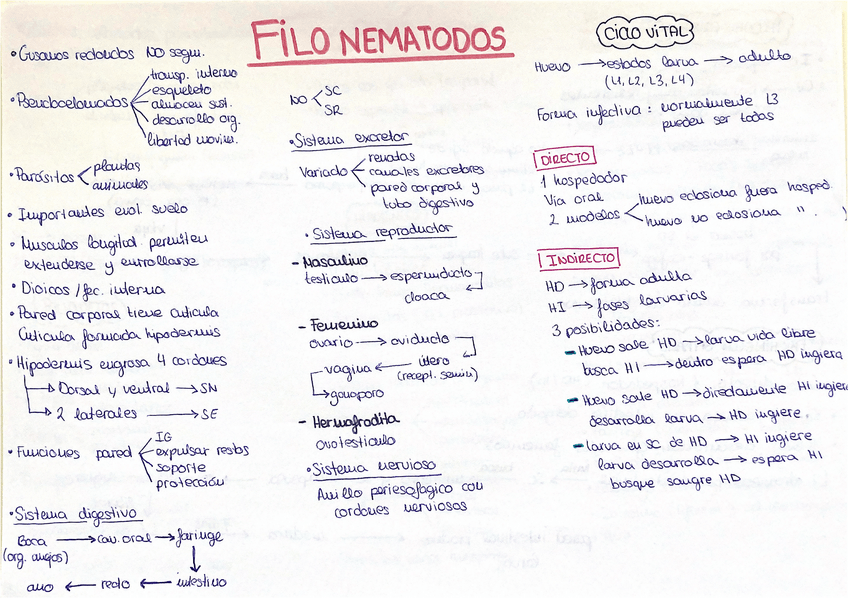 FILO NEMATODOS
• Gusanos redondos NO segm.
• Pseudocelomados
transp. interno
esqueleto
almacen sust.
desarrollo org.
libertad movim.
• Parásitos
plantas
animales
• Importantes evol. suelo
• Musculos longitud. permiten
extenderse y enrollarse
• Dioicos / fec. interna
• Pared corporal tiene cuticula
Cuticula formada hipodermis
• Hipodermis engrosa 4 cordones
→ Dorsal y ventral → SN
→ 2 laterales → SE
• Funciones pared
IG
expulsar restos
soporte
protección
• Sistema digestivo
Boca → cav. oral → faringe
(org. anejos)
ano ← recto ← intestino
NO
SC
SR
• Sistema excretor
Variado
renadas
canales excretores
pared corporal y
tubo digestivo
• Sistema reproductor
- Masculino
testiculo → espermiducto
cloaca
- Femenino
ovario → oviducto
vagina ← útero
(recept. semin)
→ gonoporo
- Hermafrodita
ovotesticulo
• Sistema nervioso
Anillo periesofágico con
cordones nerviosos
CICLO VITAL
Huevo → estados larva → adulto
(L1, L2, L3, L4)
Forma infectiva: normalmente L3
pueden ser todas
DIRECTO
1 hospedador
Via oral
2 modelos
huevo eclosiona fuera hosped.
huevo no eclosiona " . )
INDIRECTO
HD → forma adulta
HI → fases larvarias
3 posibilidades:
- Huevo sale HD → larva vida libre
busca HI → dentro espera HD ingiera
- Huevo sale HD → directamente HI ingiere
desarrolla larva → HD ingiere.
- larva en SC de HD → HI ingiere
larva desarrolla → espera HI
busque sangre HD